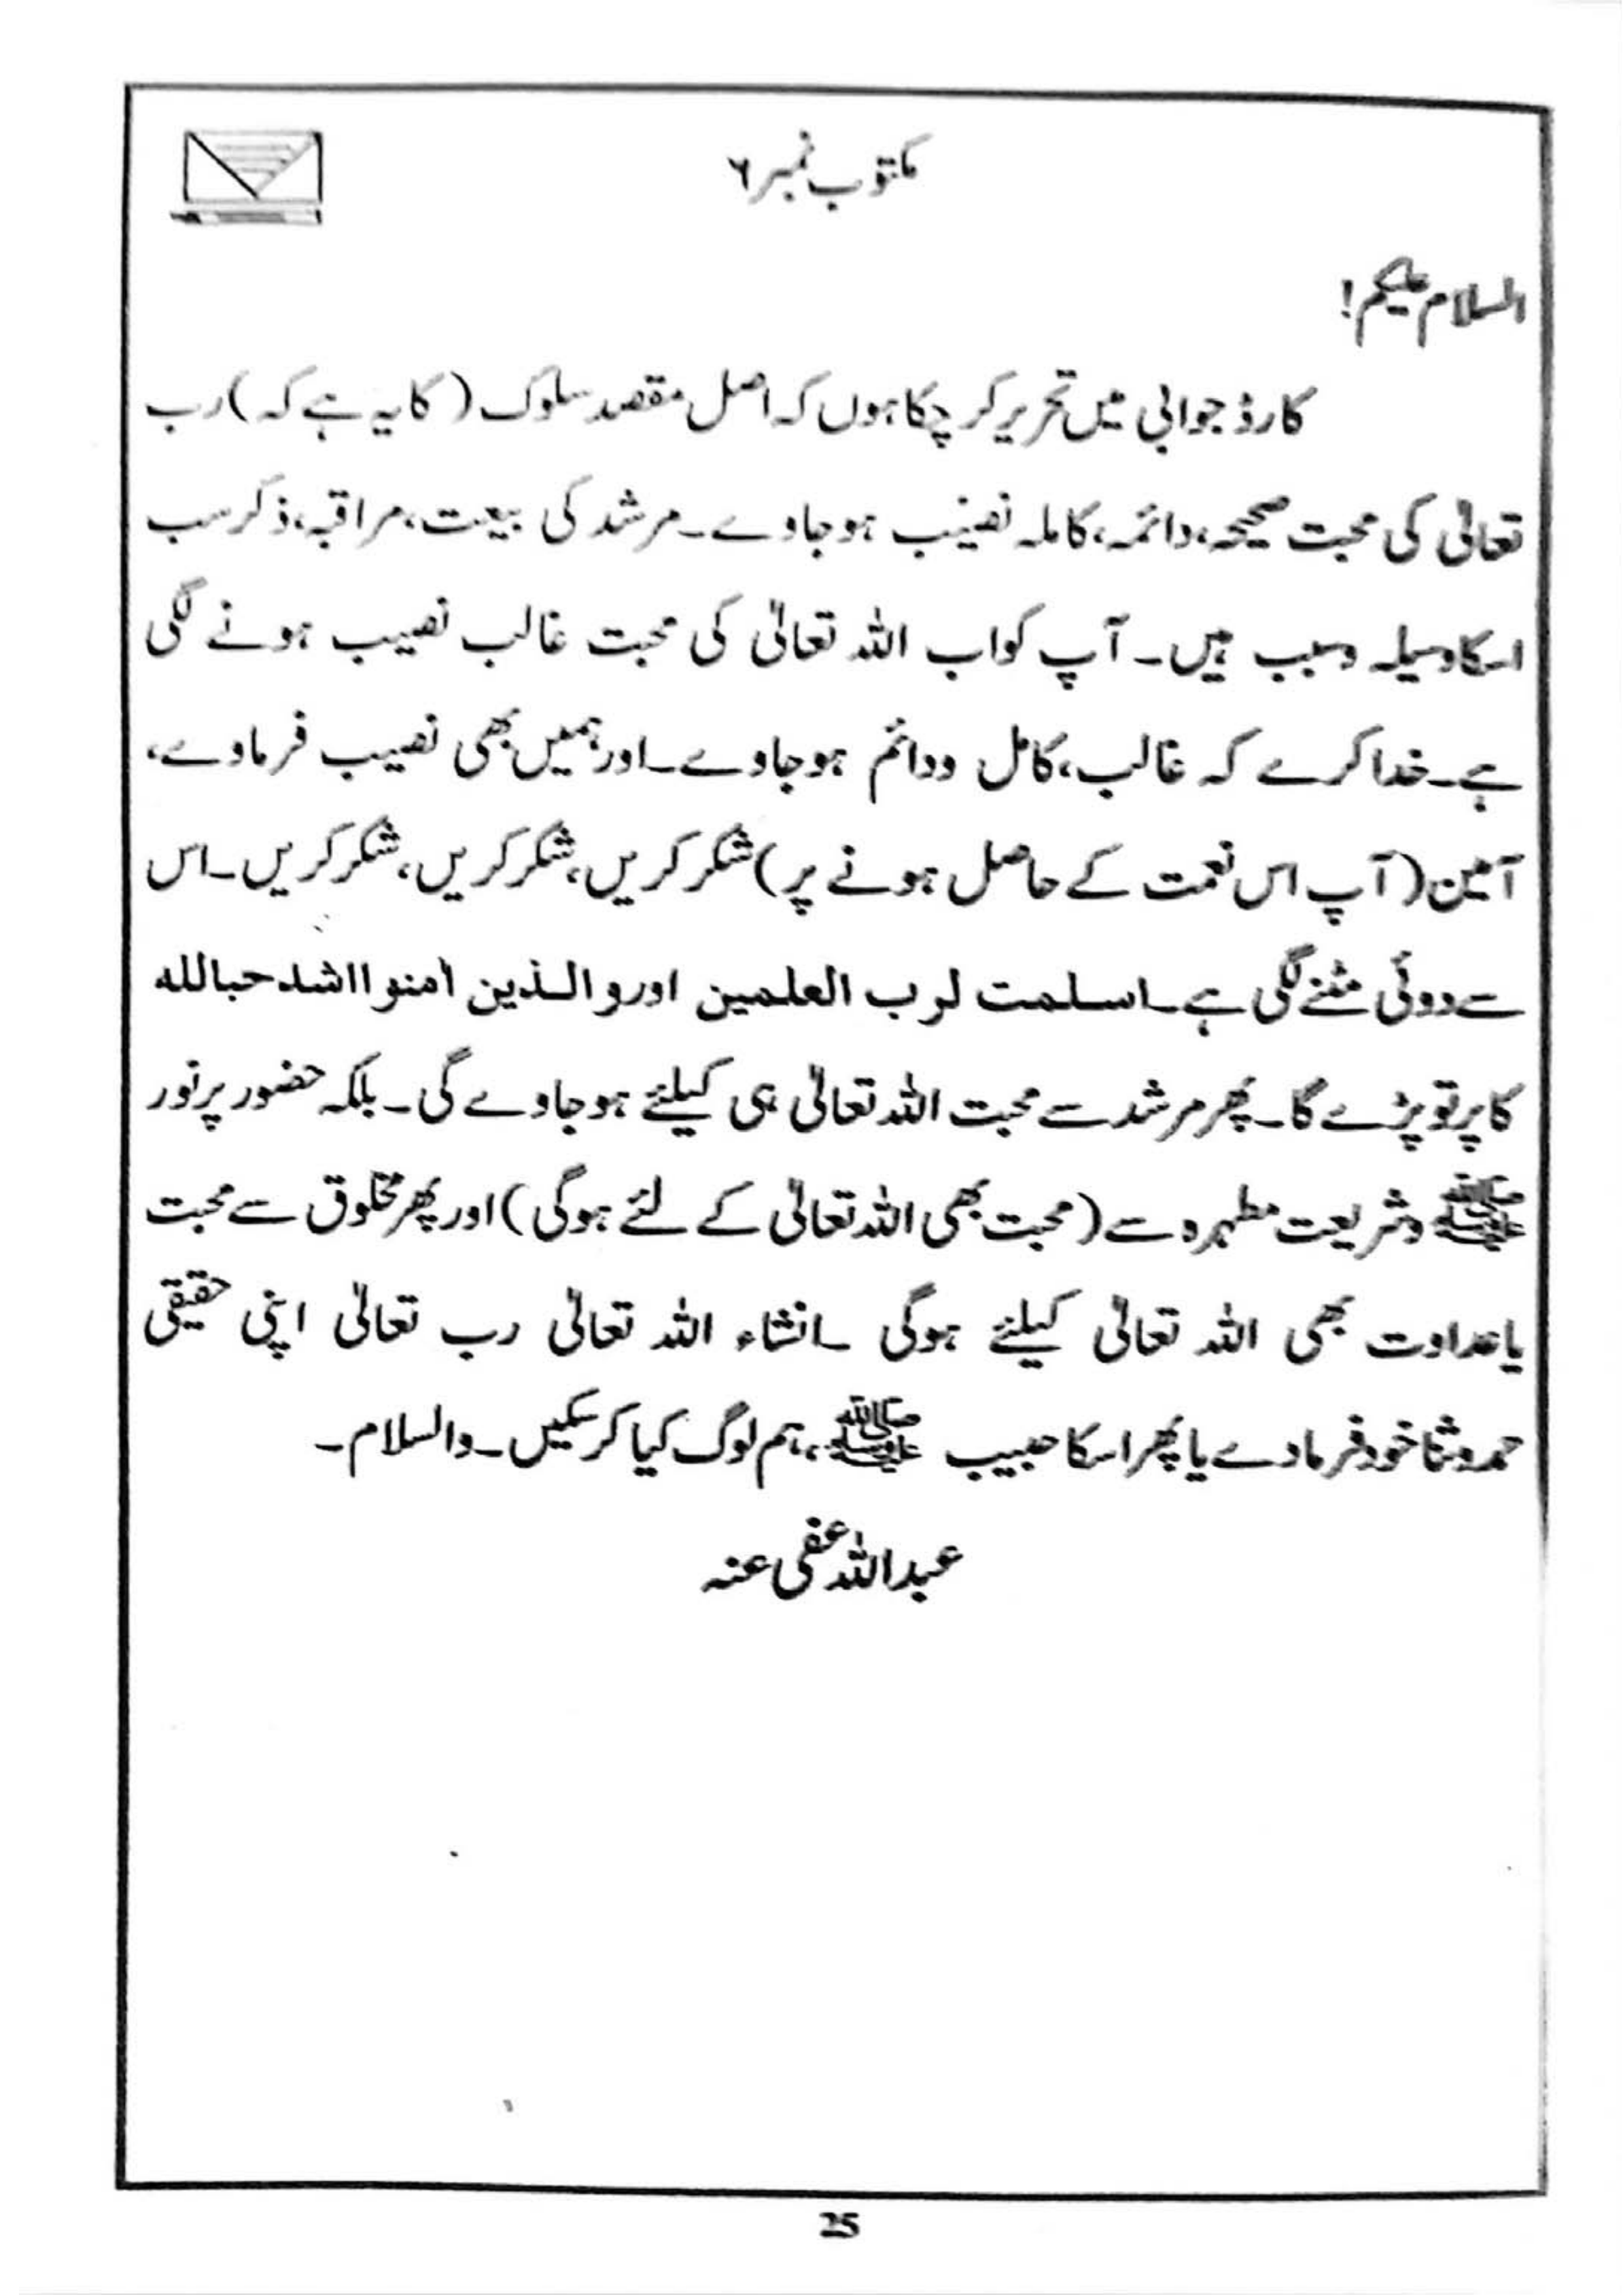 مکتوب نمبر ۶
السلام علیکم!
کارڈ جوابی میں تحریر کر چکا ہوں کہ اصل مقصد سلوک (کا یہ ہے کہ) رب
تعالیٰ کی محبت صحیحہ، دائمہ، کاملہ نصیب ہو جاوے۔ مرشد کی بیعت، مراقبہ، ذکر سب
اسکا وسیلہ و سبب ہیں۔ آپ کو اب اللہ تعالیٰ کی محبت غالب نصیب ہونے لگی
ہے۔ خدا کرے کہ غالب، کامل و دائم ہو جاوے۔ اور ہمیں بھی نصیب فرماوے،
آمین (آپ اس نعمت کے حاصل ہونے پر) شکر کریں، شکر کریں، شکر کریں۔ اس
سے دوئی مٹنے لگی ہے۔ اسلمت لرب العلمین اور والذین اٰمنوا اشد حبا للہ
کا پرتو پڑے گا۔ پھر مرشد سے محبت اللہ تعالیٰ ہی کیلئے ہو جاوے گی۔ بلکہ حضور پر نور
ﷺ و شریعت مطہرہ سے (محبت بھی اللہ تعالیٰ کے لئے ہوگی) اور پھر مخلوق سے محبت
یا عداوت بھی اللہ تعالیٰ کیلئے ہوگی ۔ انشاء اللہ تعالیٰ رب تعالیٰ اپنی حقیقی
حمد و ثنا خود فرمادے یا پھر اسکا حبیب ﷺ، ہم لوگ کیا کر سکیں۔ والسلام۔
عبداللہ عفی عنہ
25